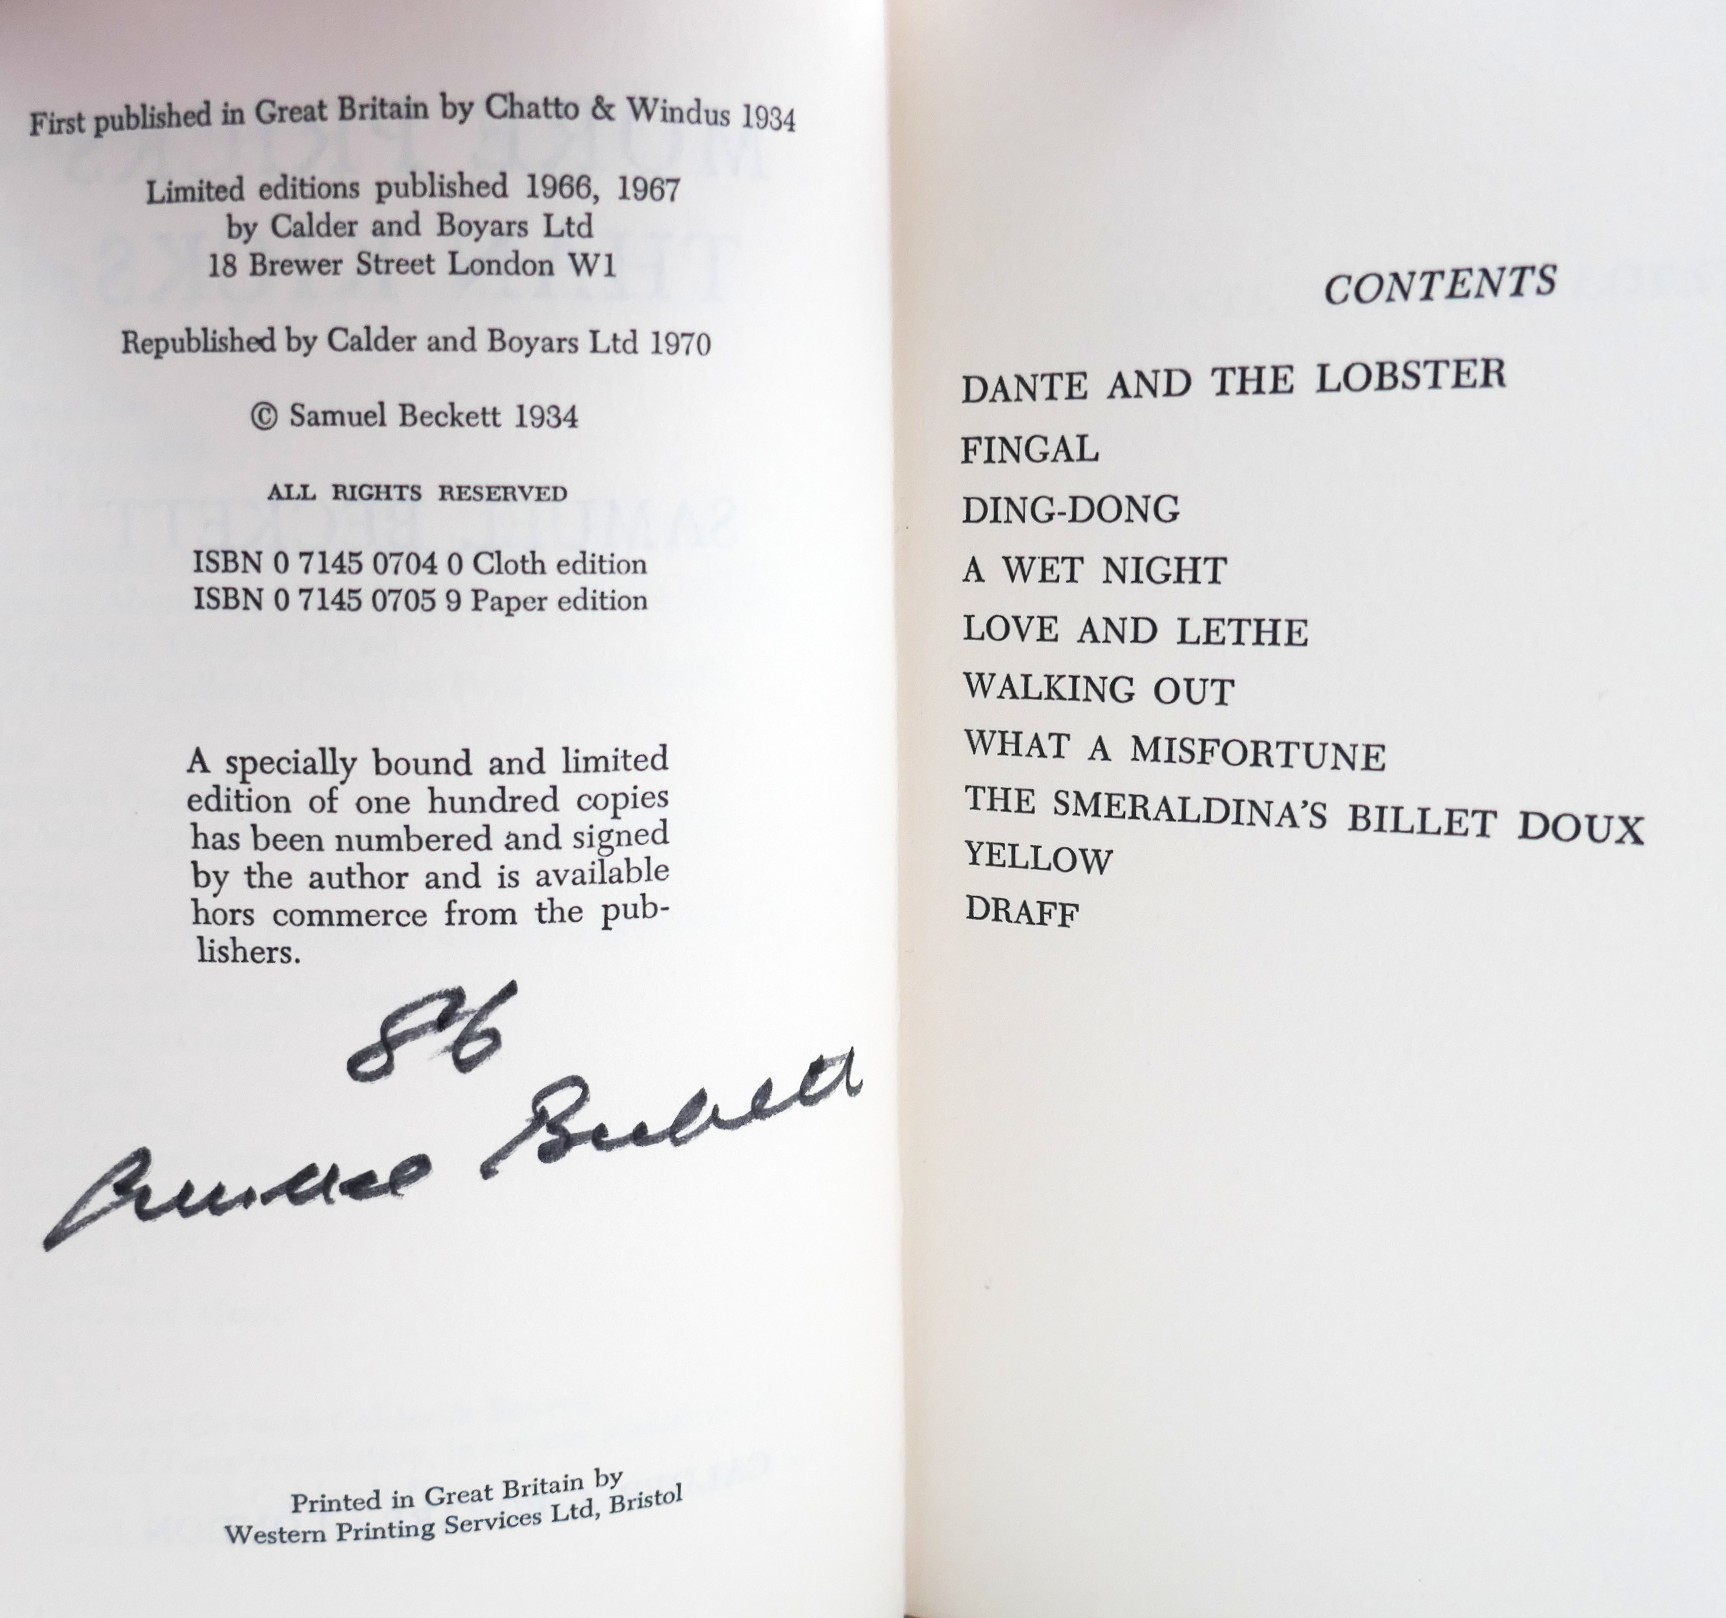 First published in Great Britain by Chatto & Windus 1934
Limited editions published 1966, 1967
by Calder and Boyars Ltd
18 Brewer Street London W1
Republished by Calder and Boyars Ltd 1970
© Samuel Beckett 1934
ALL RIGHTS RESERVED
ISBN 0 7145 0704 0 Cloth edition
ISBN 0 7145 0705 9 Paper edition
A specially bound and limited
edition of one hundred copies
has been numbered and signed
by the author and is available
hors commerce from the pub-
lishers.
86
Samuel Beckett
Printed in Great Britain by
Western Printing Services Ltd, Bristol
CONTENTS
DANTE AND THE LOBSTER
FINGAL
DING-DONG
A WET NIGHT
LOVE AND LETHE
WALKING OUT
WHAT A MISFORTUNE
THE SMERALDINA'S BILLET DOUX
YELLOW
DRAFF